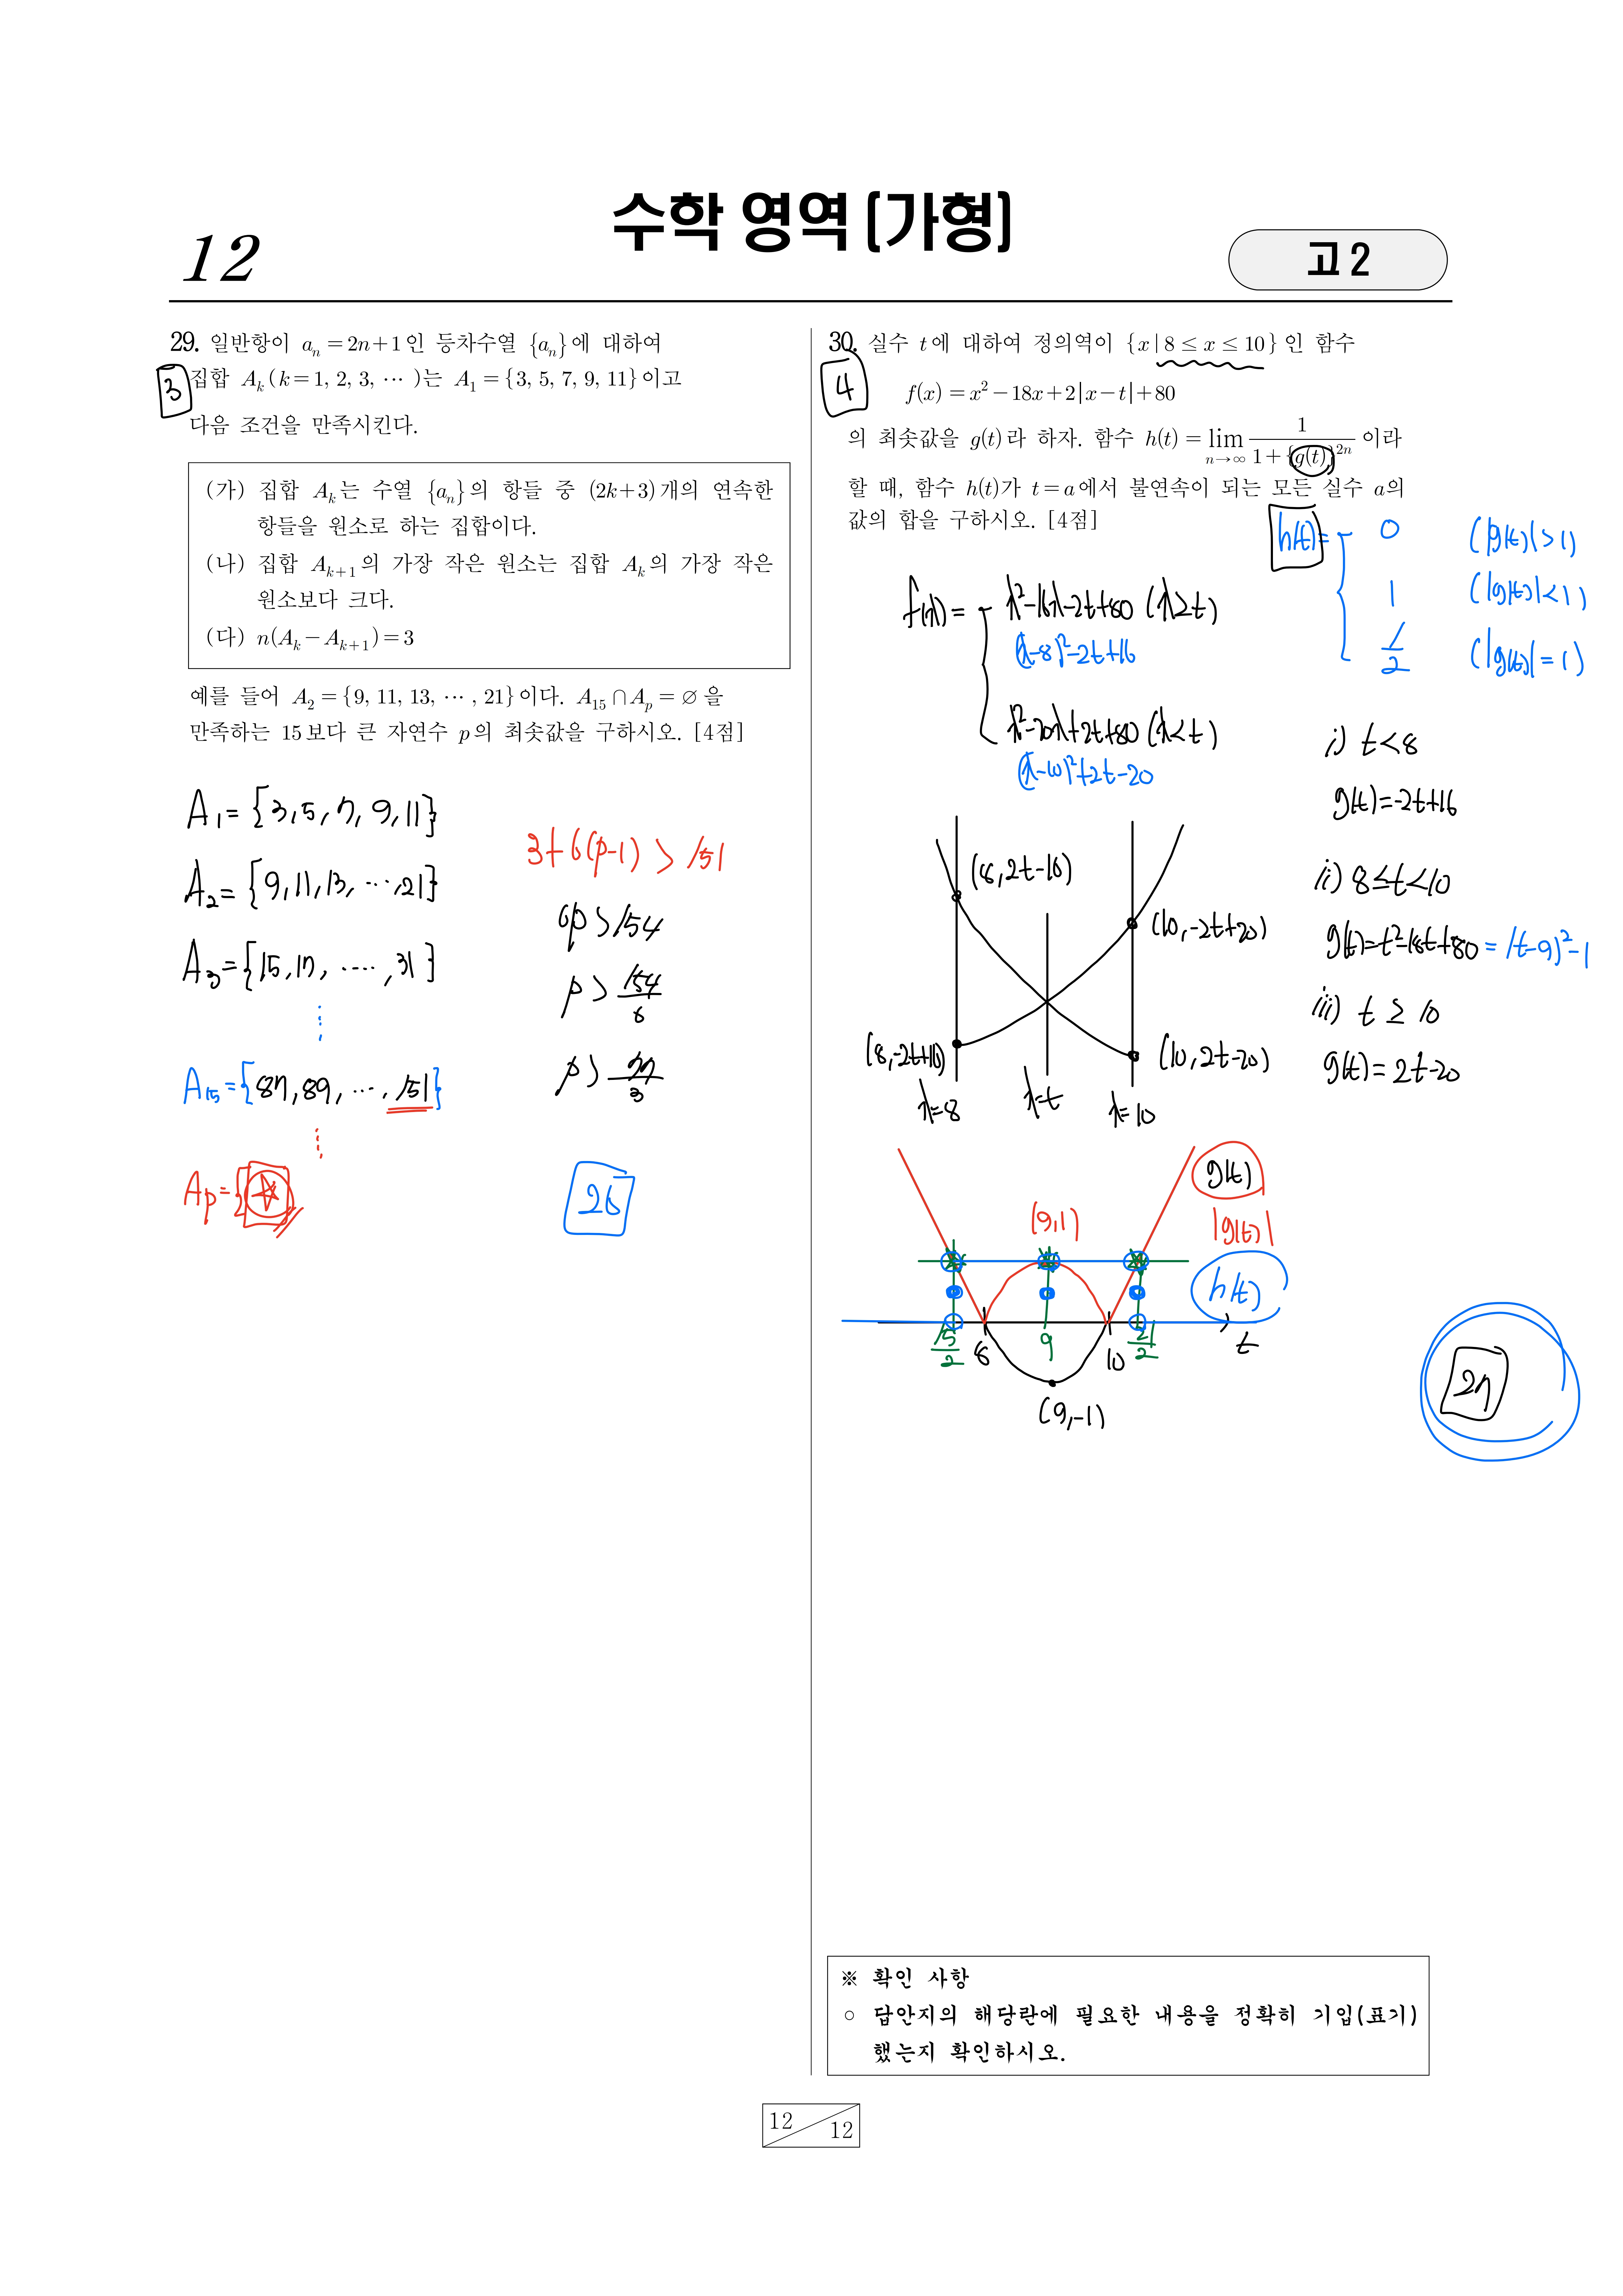 수학 영역 [가형]
12
고2
29. 일반항이 aₙ = 2n+1인 등차수열 {aₙ}에 대하여
집합 Aₖ(k = 1, 2, 3, ⋯ )는 A₁ = {3, 5, 7, 9, 11}이고
3
다음 조건을 만족시킨다.
(가) 집합 Aₖ는 수열 {aₙ}의 항들 중 (2k+3)개의 연속한
항들을 원소로 하는 집합이다.
(나) 집합 Aₖ₊₁의 가장 작은 원소는 집합 Aₖ의 가장 작은
원소보다 크다.
(다) n(Aₖ − Aₖ₊₁) = 3
예를 들어 A₂ = {9, 11, 13, ⋯ , 21}이다. A₁₅ ∩ Aₚ = ∅을
만족하는 15보다 큰 자연수 p의 최솟값을 구하시오. [4점]
A₁ = {3, 5, 7, 9, 11}
A₂ = {9, 11, 13, ⋯, 21}
A₃ = {15, 17, ⋯⋯, 31}
A₁₅ = {87, 89, ⋯, 151}
Aₚ = {☆
3+6(p-1) > 151
6p > 154
p > 154/6
p > 77/3
26
30. 실수 t에 대하여 정의역이 {x | 8 ≤ x ≤ 10}인 함수
4
f(x) = x² − 18x + 2|x − t| + 80
의 최솟값을 g(t)라 하자. 함수 h(t) = lim n→∞ 1/(1+{g(t)}²ⁿ) 이라
할 때, 함수 h(t)가 t = a에서 불연속이 되는 모든 실수 a의
값의 합을 구하시오. [4점]
h(t) = { 0 (|g(t)| > 1)
1 (|g(t)| < 1)
1/2 (|g(t)| = 1)
f(x) = { x²-16x-2t+80 (x≥t)
(x-8)²-2t+16
x²-20x+2t+80 (x<t)
(x-10)²+2t-20
i) t<8
g(t) = -2t+16
ii) 8≤t<10
g(t) = t²-18t+80 = (t-9)²-1
iii) t ≥ 10
g(t) = 2t-20
(8, 2t-16)
(10, -2t+20)
(8, -2t+16)
(10, 2t-20)
x=8
x=t
x=10
g(t)
(9, 1)
|g(t)|
h(t)
15/2
8
9
10
21/2
t
(9, -1)
27
※ 확인 사항
○ 답안지의 해당란에 필요한 내용을 정확히 기입(표기)
했는지 확인하시오.
12
12